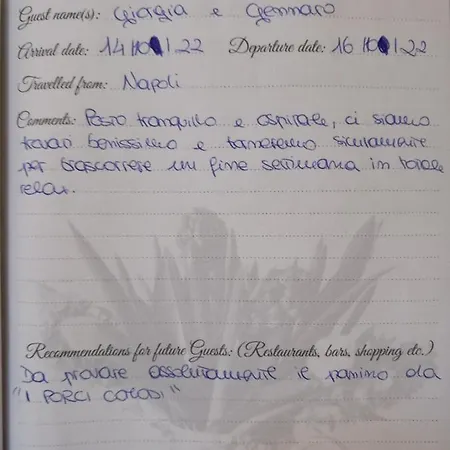 Guest name(s): Giorgia e Gennaro
Arrival date: 14 | 22 Departure date: 16 | 22
Travelled from: Napoli
Comments: Posto tranquillo e ospitale, ci siamo
trovati benissimo e torneremo sicuramente
per trascorrere un fine settimana in totale
relax.
Recommendations for future Guests: (Restaurants, bars, shopping etc.)
Da provare assolutamente il panino da
"I PORCI COMODI"